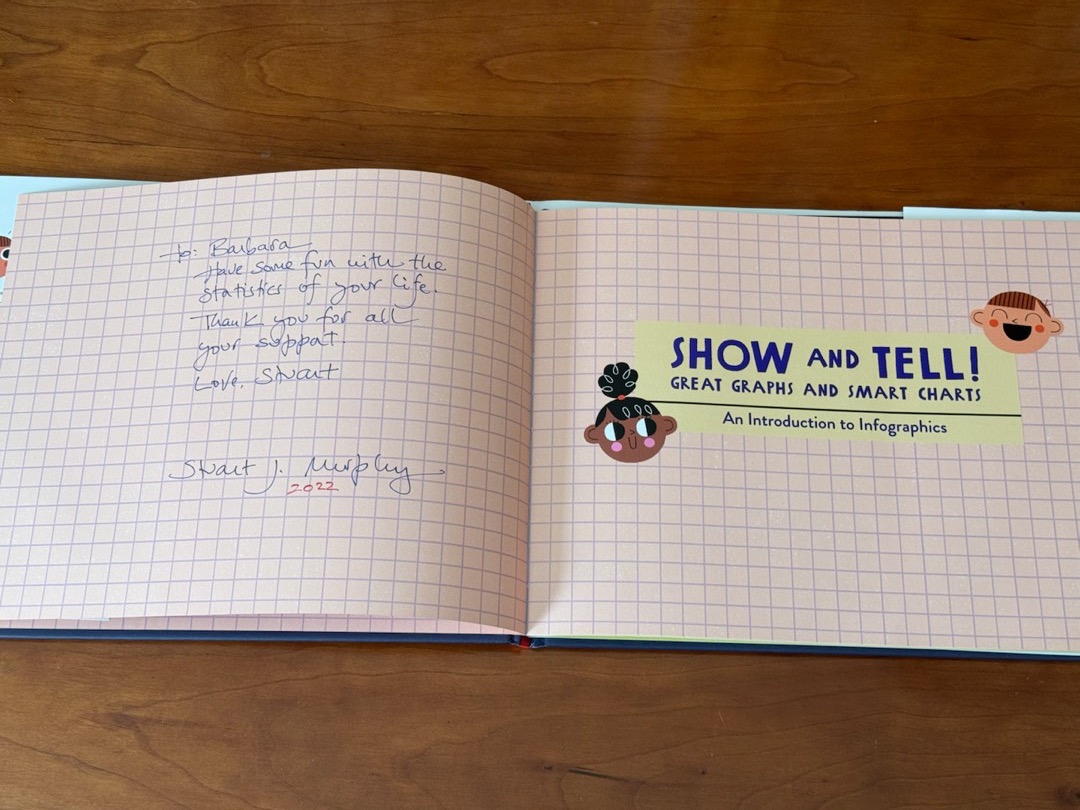 to: Barbara
Have some fun with the
statistics of your life.
Thank you for all
your support
Love, Stuart
Stuart J. Murphy
2022
SHOW AND TELL!
GREAT GRAPHS AND SMART CHARTS
An Introduction to Infographics